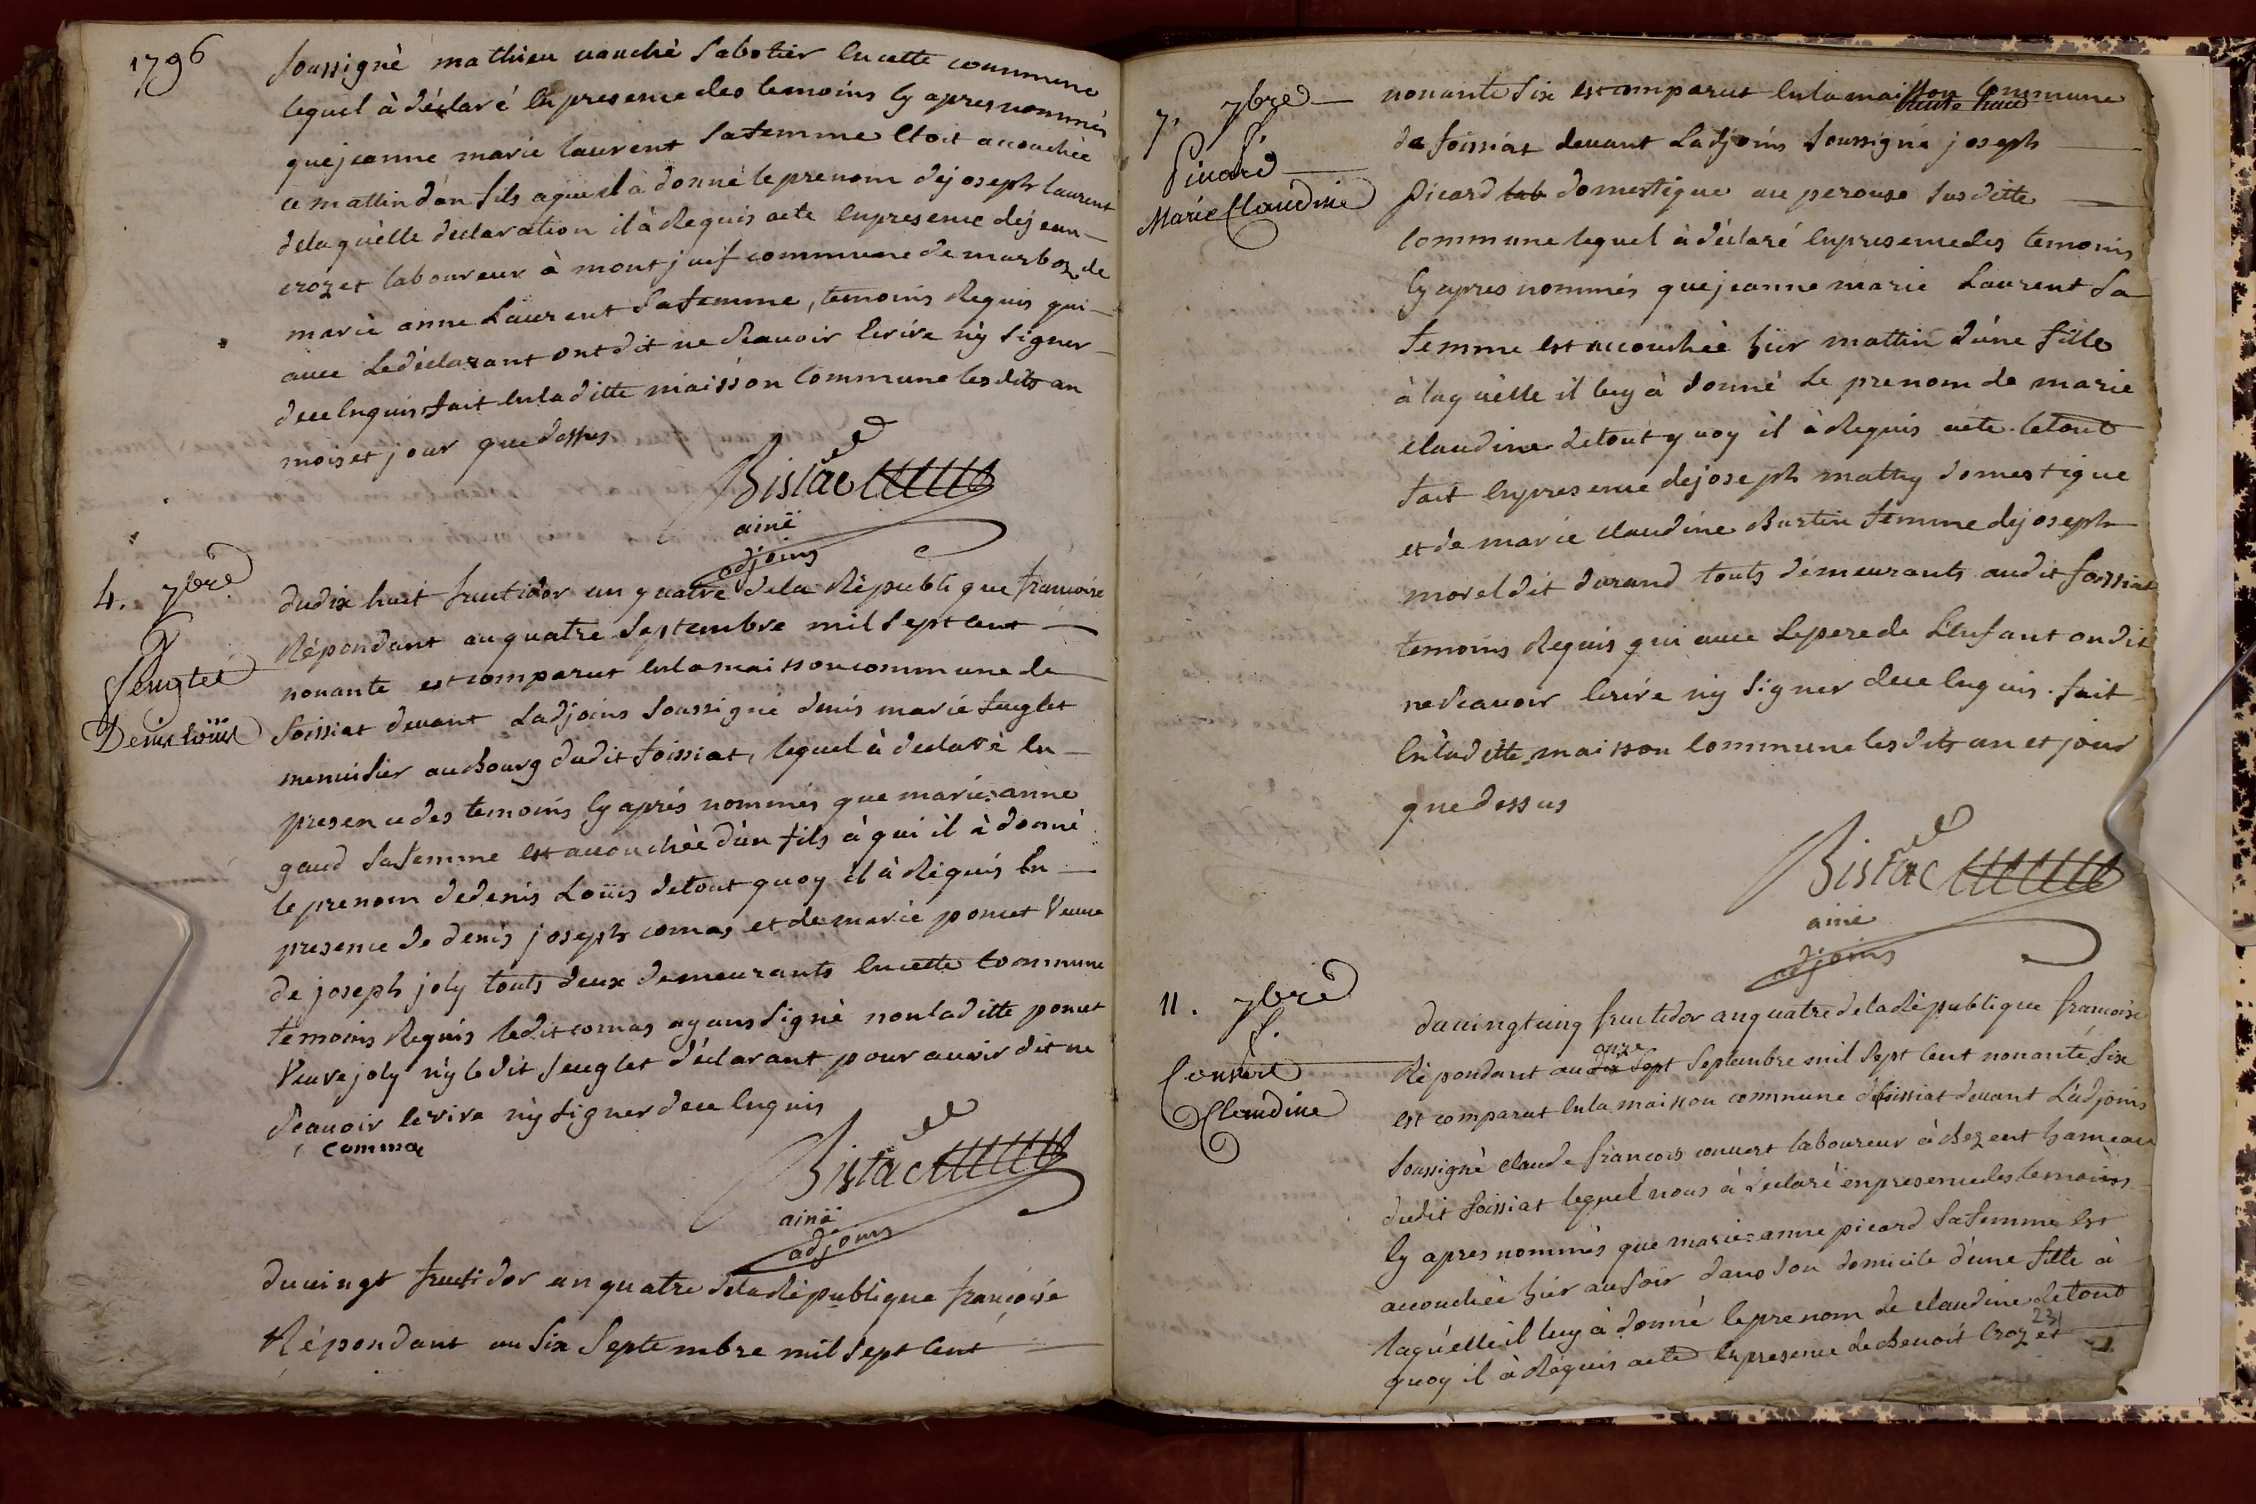 1796
soussigné mathieu vauché sabotier en cette commune
lequel à déclaré en presence des temoins cy apres nommés
que jeanne marie laurent sa femme etoit accouchée
ce mattin d'un fils a qui il à donné le prenom de joseph laurent
de laquelle declaration il à Requis acte en presence de jean
crozet laboureur à montjuif commune de marboz, de
marie anne Laurent sa femme, temoins Requis qui
avec Le déclarant ont dit ne sçavoir Ecrire ny signer
de ce enquis, fait en la ditte maison commune les dits an
mois et jour que dessus
Bistac
ainé
adjoins
4. 7bre
feuglet
Denis Loüis
du dix huit fructidor an quatre de la République francoise
Répondant au quatre septembre mil sept cent
nonante est comparut en la maison commune de
foissiat devant Ladjoins soussigné denis marie feuglet
menuisier au Bourg dudit foissiat, lequel à declaré en
presence des temoins cy aprés nommés que marie=anne
gaud sa femme est accouchée d'un fils à qui il à donné
le prenom de denis Loüis de tout quoy il à Réquis en
presence de denis joseph comas et de marie poncet Veuve
de joseph joly touts deux demeurants en cette commune
temoins Requis ledit comas ayans signé non laditte poncet
Veuve joly ny le dit feuglet déclarant pour avoir dit ne
sçavoir ecrire ny signer de ce enquis
Comma
Bistac
ainé
adjoins
du vingt fructidor an quatre de la République francoise
Répondant au six septembre mil sept cent
7. 7bre
f.
Picard
Marie Claudine
nonante six est comparut en la maison commune
de foissiat devant Ladjoins soussigné joseph
Picard lab domestique au perouse susditte
commune lequel à déclaré en presence des temoins
cy apres nommés que jeanne marie Laurent sa
femme est accouchée hier mattin d'une fille
à laquelle il luy à donné le prenom de marie
claudine de tout quoy il à Requis acte le tout
fait en presence de joseph mathy domestique
et de marie claudine Burtin femme de joseph
morel dit durand touts demeurants au dit foissiat
temoins Requis qui avec Le pere de L'enfant on dit
ne sçavoir Ecrire ny signer de ce enquis. fait
en laditte maison commune les dits an et jour
que dessus
Bistac
ainé
adjoins
11. 7bre
f.
Convert
Claudine
du vingt cinq fructidor an quatre de la République francoise
onze
Répondant au dix sept septembre mil sept cent nonante six
est comparut en la maison commune de foissiat devant Ladjoins
soussigné claude francois convert laboureur à chezent hameau
dudit foissiat lequel nous à declaré en presence des temoins
cy apres nommés que marie=anne picard sa femme est
accouchée hier au soir dans son domicile d'une fille à
laquelle il luy à donné le prenom de claudine de tout
quoy il à Réquis acte en presence de Benoit Crozet
231